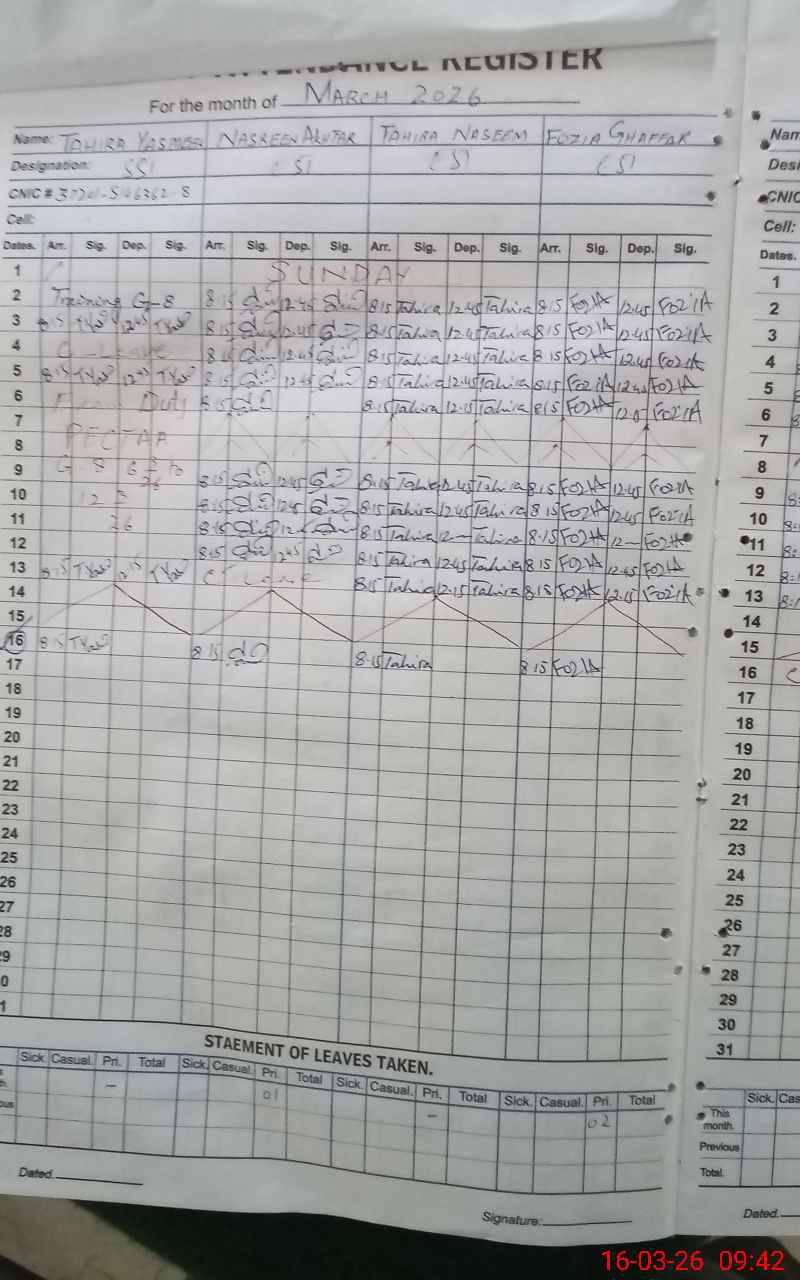 ATTENDANCE REGISTER
For the month of MARCH 2026
Name: TAHIRA YASMEEN NASREEN AKHTAR TAHIRA NASEEM FOZIA GHAFFAR
Designation: SSI CSI CSI CSI
CNIC #
Cell:
Dates. Arr. Sig. Dep. Sig. Arr. Sig. Dep. Sig. Arr. Sig. Dep. Sig. Arr. Sig. Dep. Sig.
1 SUNDAY
2 Training G-8 8:15 12:45 8:15 Tahira 12:45 Tahira 8:15 FOZIA 12:45 FOZIA
3 8:15 12:45 8:15 12:45 8:15 Tahira 12:45 Tahira 8:15 FOZIA 12:45 FOZIA
4 C Leave 8:15 12:45 8:15 Tahira 12:45 Tahira 8:15 FOZIA 12:45 FOZIA
5 8:15 12:45 8:15 12:45 8:15 Tahira 12:45 Tahira 8:15 FOZIA 12:45 FOZIA
6 Duty 8:15 8:15 Tahira 12:15 Tahira 8:15 FOZIA 12:15 FOZIA
7
8 PECTAA
9 G-8 8:15 12:45 8:15 Tahira 12:45 Tahira 8:15 FOZIA 12:45 FOZIA
10 8:15 12:45 8:15 Tahira 12:45 Tahira 8:15 FOZIA 12:45 FOZIA
11 8:15 8:15 Tahira 12 Tahira 8:15 FOZIA 12 FOZIA
12 8:15 12:45 8:15 Tahira 12:45 Tahira 8:15 FOZIA 12:45 FOZIA
13 8:15 12:15 C Leave 8:15 Tahira 12:15 Tahira 8:15 FOZIA 12:15 FOZIA
14
15
16 8:15 8:15 8:15 Tahira 8:15 FOZIA
17
18
19
20
21
22
23
24
25
26
27
28
29
0
1
STAEMENT OF LEAVES TAKEN.
Sick. Casual. Pri. Total Sick. Casual. Pri. Total Sick. Casual. Pri. Total Sick. Casual. Pri. Total
– 01 – 02
Dated.
Signature:
Nam
Desi
CNIC
Cell:
Dates.
1
2
3
4
5
6
7
8
9 8:
10 8:
11 8:
12 8:
13 8:
14
15
16
17
18
19
20
21
22
23
24
25
26
27
28
29
30
31
Sick. Cas
This month.
Previous
Total.
Dated.
16-03-26 09:42